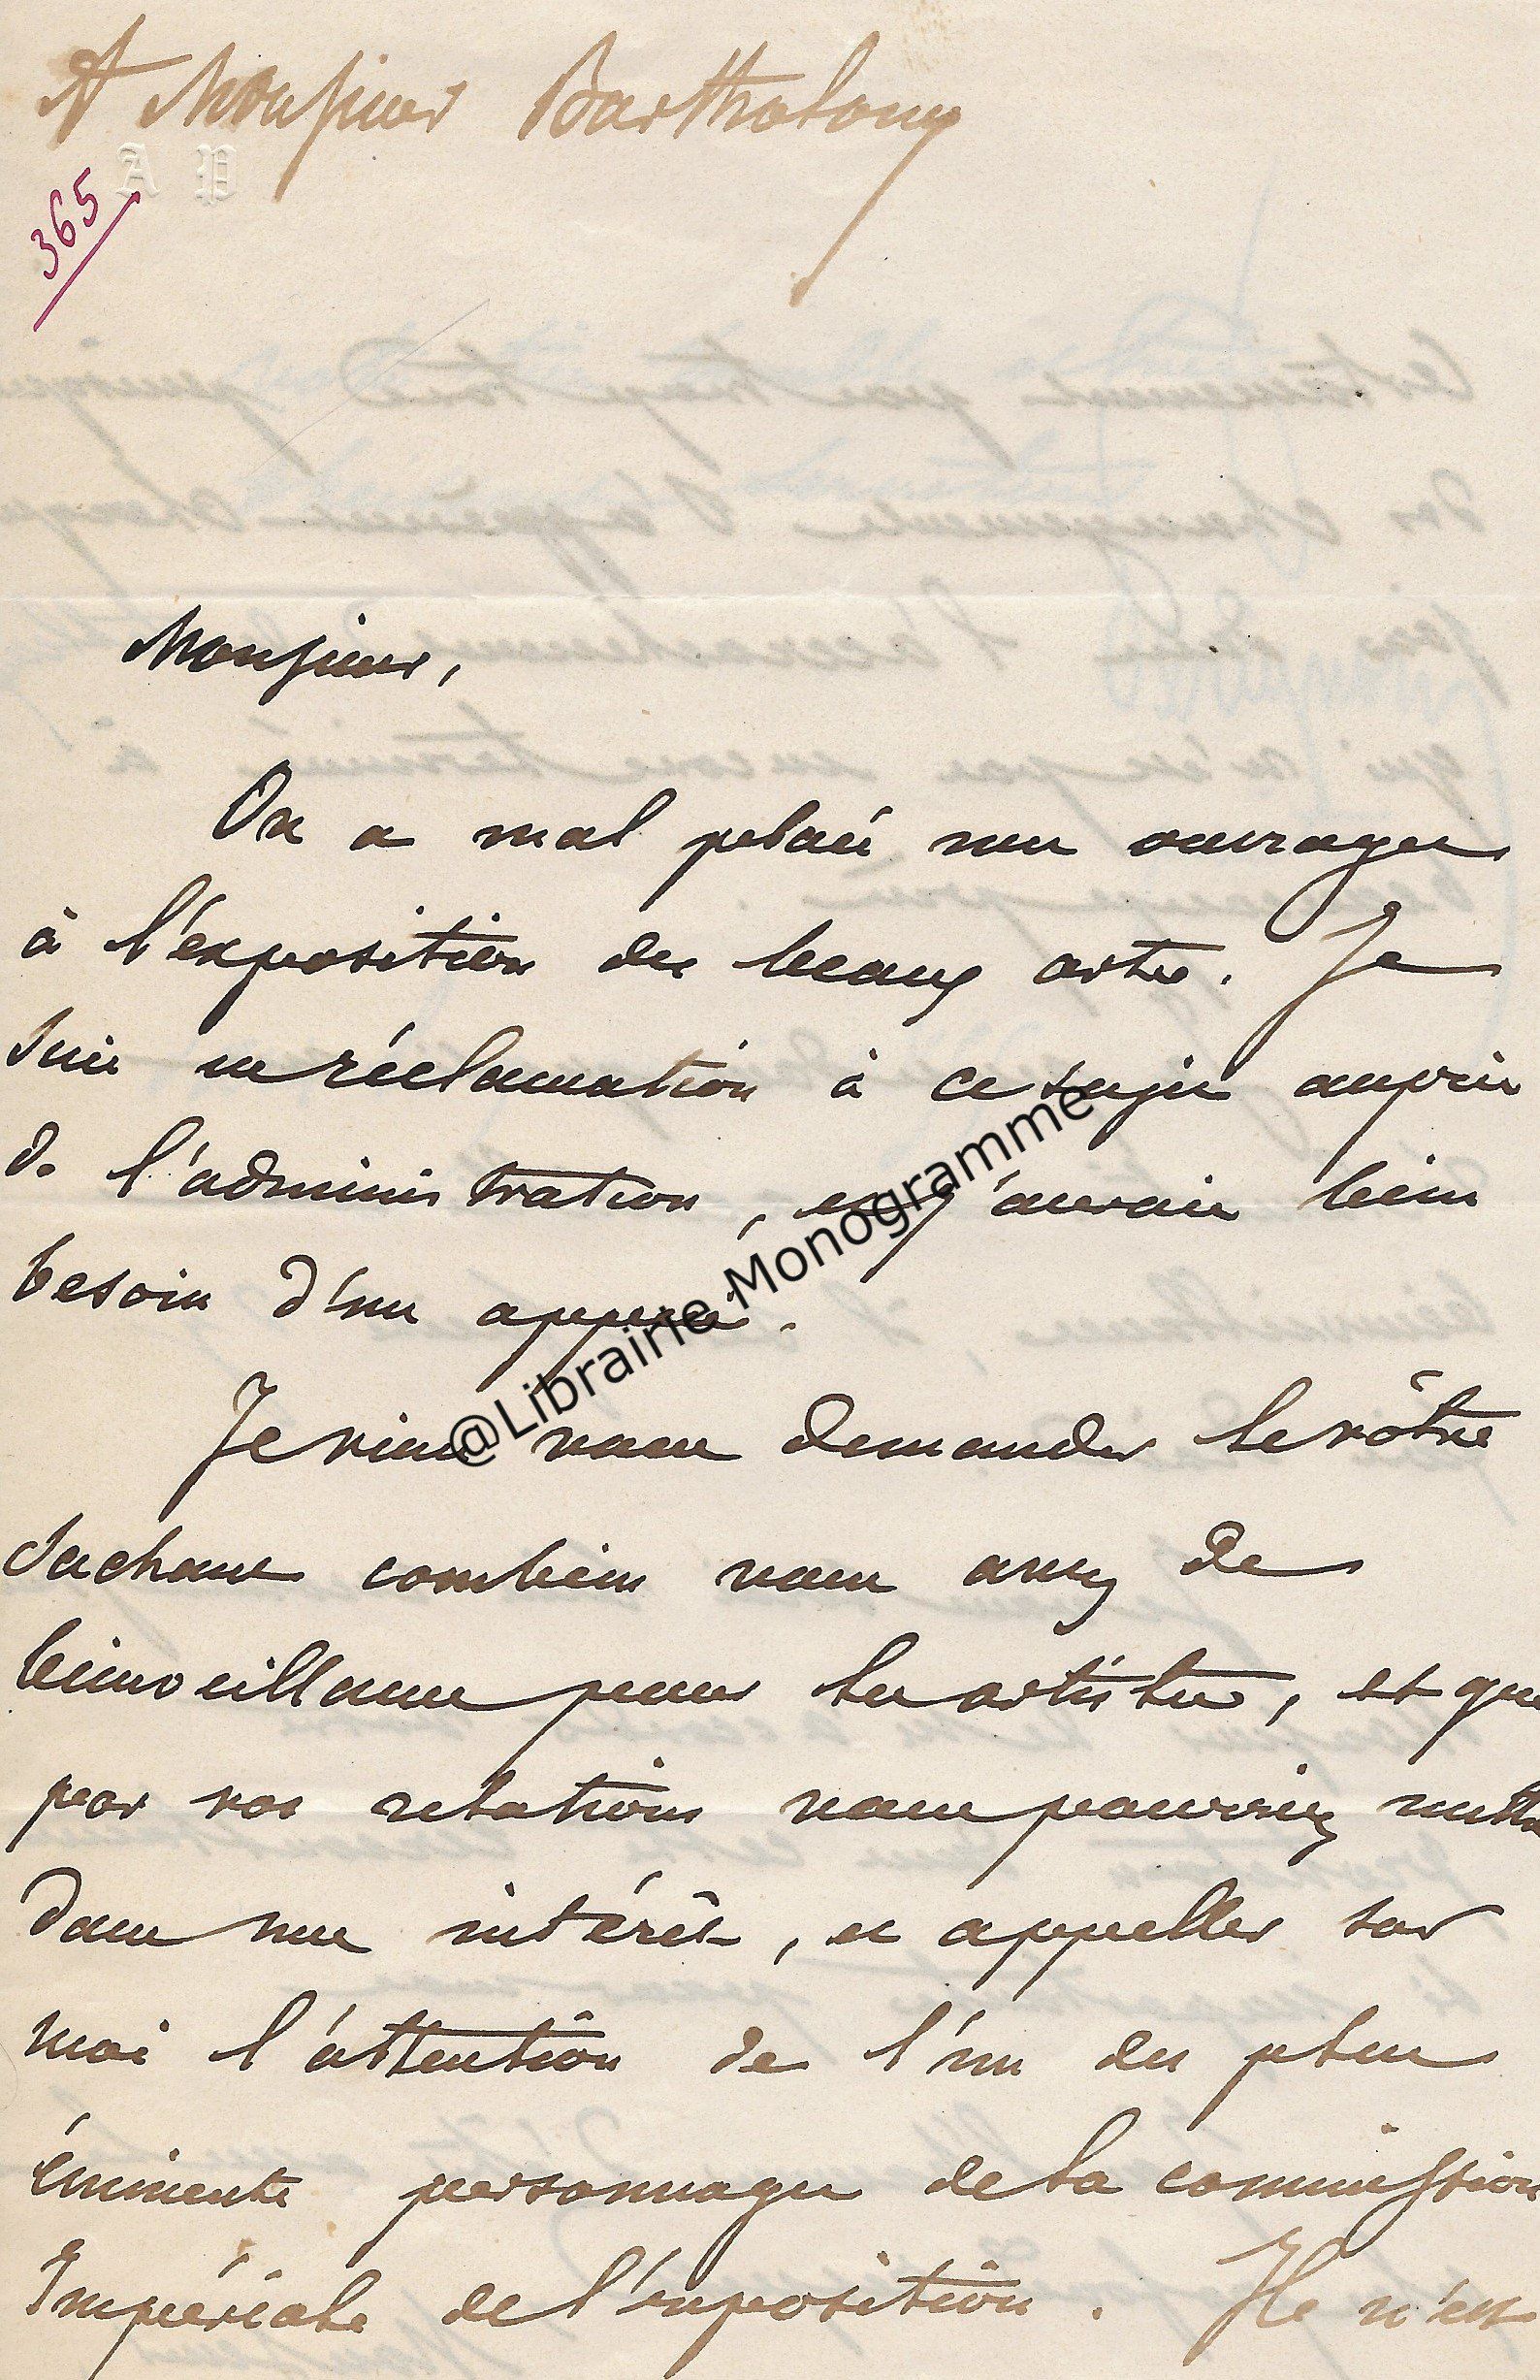 A Monsieur Bartholony
A P
365
Monsieur,
On a mal placé mes ouvrages
à l'exposition des beaux arts. Je
suis en réclamation à ce sujet auprès
de l'administration, et j'aurais bien
besoin d'un appui.
@Librairie Monogramme
Je viens vous demander le vôtre
sachant combien vous avez de
bienveillance pour les artistes, et que
par vos relations vous pouvriez mettre
dans mes intérêts, et appeller sur
moi l'attention de l'un des plus
éminents personnages de la commission
Impériale de l'exposition. Il n'est